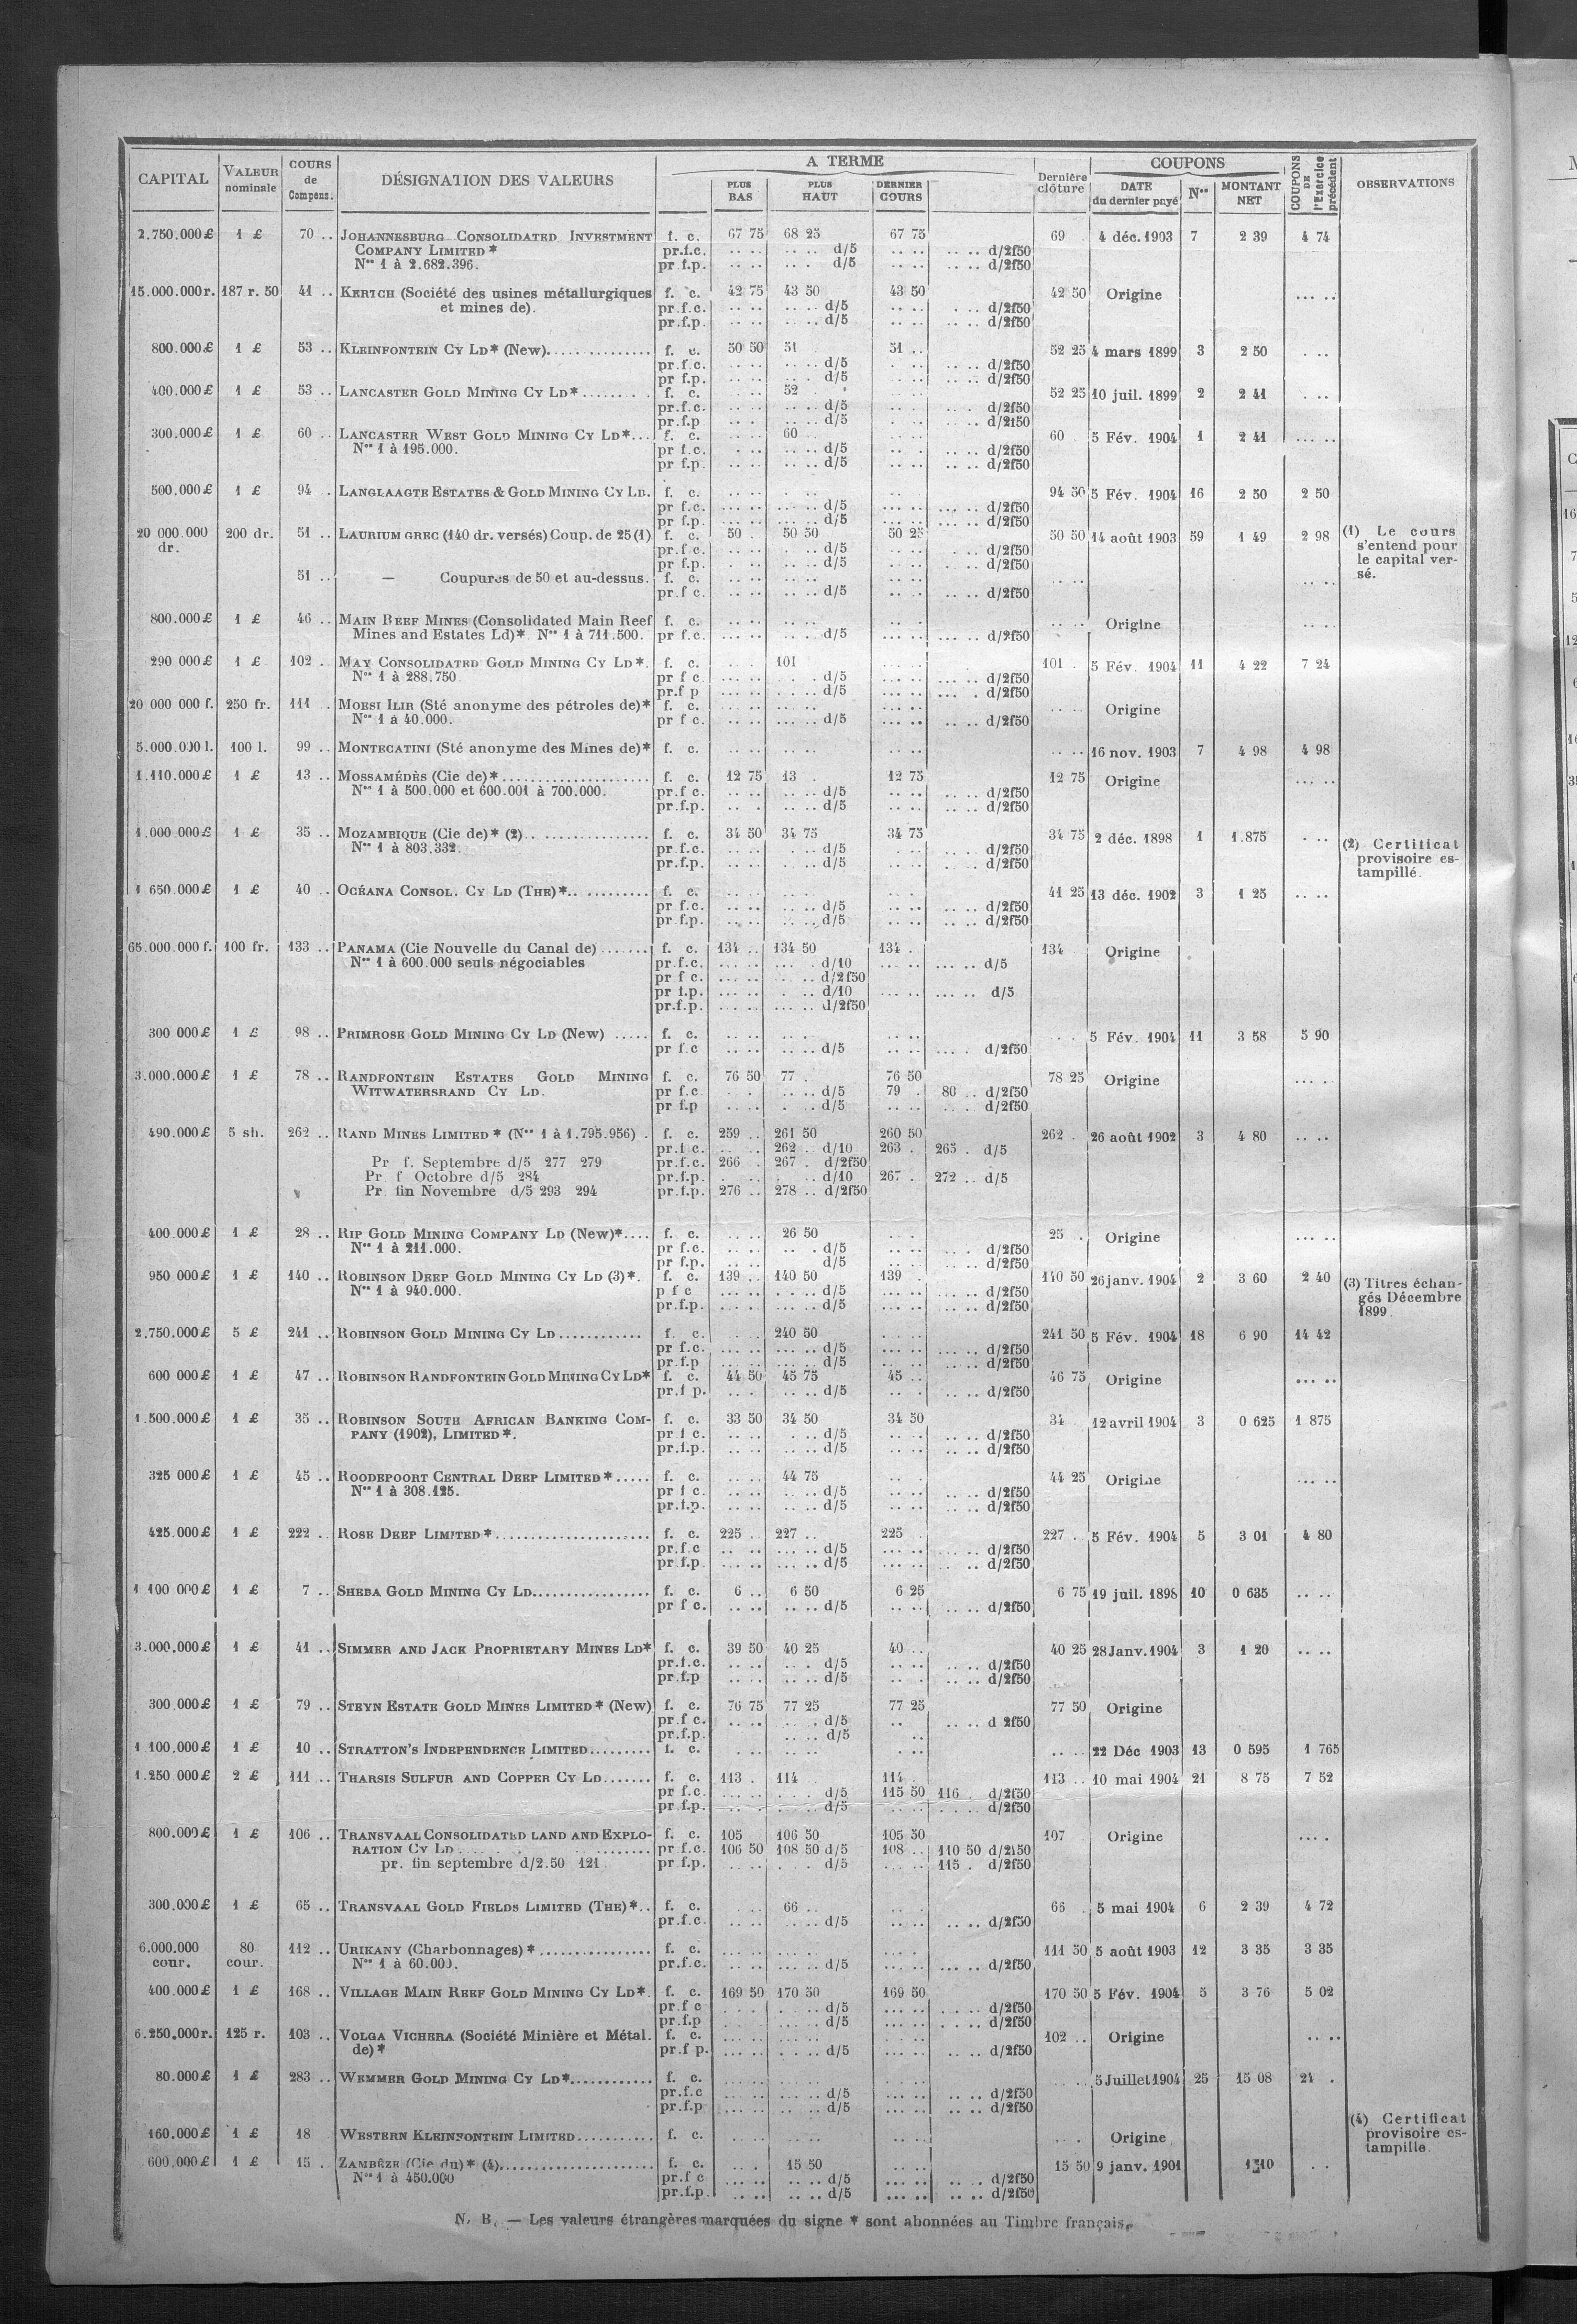 CAPITAL VALEUR nominale COURS de Compens. DÉSIGNATION DES VALEURS A TERME PLUS BAS PLUS HAUT DERNIER COURS Dernière clôture COUPONS DATE du dernier payé Nos MONTANT NET COUPONS DE l'Exercice précédent OBSERVATIONS
2.750.000£ 1 £ 70 .. JOHANNESBURG CONSOLIDATED INVESTMENT f. c. 67 75 68 25 67 75 69 . 4 déc. 1903 7 2 39 4 74
COMPANY LIMITED * pr.f.c. .. .. .. .. d/5 .. .. .. .. d/2f50
Nos 1 à 2.682.396. pr f.p. .. .. .. . d/5 .. .. .. .. d/2f50
15.000.000r. 187 r. 50 41 .. KERTCH (Société des usines métallurgiques f. c. 42 75 43 50 43 50 42 50 Origine ... ..
et mines de). pr.f.c. .. .. .. .. d/5 .. .. . .. d/2f50
pr.f.p. .. .. .. .. d/5 .. .. .. .. d/2f50
800.000£ 1 £ 53 .. KLEINFONTEIN CY LD* (New)............... f. c. 50 50 51 . 51 .. 52 25 4 mars 1899 3 2 50 . ..
pr.f.c. .. .. .. .. d/5 . .. .. .. d/2f50
pr f.p. .. .. .. . d/5 . .. .. .. d/2f50
400.000£ 1 £ 53 .. LANCASTER GOLD MINING CY LD*........ f. c. 52 . 52 25 10 juil. 1899 2 2 41 . ..
pr.f.c. .. .. .. .. d/5 .. . .. . d/2f50
pr.f.p .. .. . .. d/5 .. .. .. .. d/2f50
300.000£ 1 £ 60 .. LANCASTER WEST GOLD MINING CY LD*... f. c. 60 60 5 Fév. 1904 1 2 41 ... ..
Nos 1 à 195.000. pr f.c. . .. .. .. d/5 .. . .. .. d/2f50
pr f.p. .. .. .. .. d/5 .. .. .. .. d/2f50
500.000£ 1 £ 94 . LANGLAAGTE ESTATES & GOLD MINING CY LD. f. c. .. .. . .. .. 94 50 5 Fév. 1904 16 2 50 2 50
pr f.c. ... .. ... .. d/5 .. .. ... .. d/2f50
pr f.p. ... .. ... .. d/5 .. .. ... .. d/2f50
20 000.000 200 dr. 51 .. LAURIUM GREC (140 dr. versés) Coup. de 25 (1) f. c. 50 50 50 50 25 50 50 14 août 1903 59 1 49 2 98 (1) Le cours
dr. pr.f c. .. .. . .. d/5 .. .. . .. d/2f50 s'entend pour
pr f.p. .. .. .. .. d/5 .. .. .. .. d/2f50 le capital ver-
51 .. — Coupures de 50 et au-dessus. f. c. .. .. .. .. .. .. .. .. .. .. sé.
pr.f c. .. .. .. .. d/5 .. .. .. .. d/2f50
800.000£ 1 £ 46 .. MAIN REEF MINES (Consolidated Main Reef f. c. .. .. .. .. .. . .. .. Origine .. .
Mines and Estates Ld)*. Nos 1 à 711.500. pr f.c. ... .. .. .. d/5 ... .. ... .. d/2f50
290 000£ 1 £ 102 . MAY CONSOLIDATED GOLD MINING CY LD*. f. c. . . 101 101 . 5 Fév. 1904 11 4 22 7 24
Nos 1 à 288.750 pr f c. ... .. . . d/5 ... .. ... .. d/2f50
pr.f p ... .. . . d/5 ... .. ... . d/2f50
20 000 000 f. 250 fr. 111 .. MOESI ILIR (Sté anonyme des pétroles de)* f. c. ... .. ... .. ... .. .. .. Origine
Nos 1 à 40.000. pr f c. ... .. ... .. d/5 ... .. .. .. d/2f50
5.000.000 l. 100 l. 99 .. MONTECATINI (Sté anonyme des Mines de)* f. c. .. .. .. .. .. .. .. .. 16 nov. 1903 7 4 98 4 98
1.110.000£ 1 £ 13 .. MOSSAMÉDÈS (Cie de)*..................... f. c. 12 75 13 . 12 75 12 75 Origine ... ..
Nos 1 à 500.000 et 600.001 à 700.000. pr.f c. .. .. .. .. d/5 .. .. .. .. d/2f50
pr.f.p. .. . .. .. d/5 .. .. .. .. d/2f50
1.000 000£ 1 £ 35 .. MOZAMBIQUE (Cie de)* (2).................. f. c. 34 50 34 75 34 75 34 75 2 déc. 1898 1 1.875 . .. (2) Certificat
Nos 1 à 803.332. pr f.c. .. .. . .. d/5 . .. .. .. d/2f50 provisoire es-
pr.f.p. .. .. . .. d/5 .. .. .. .. d/2f50 tampillé.
1 650.000£ 1 £ 40 .. OCÉANA CONSOL. CY LD (THE)*............ f. c. .. .. .. .. . . 41 25 13 déc. 1902 3 1 25 .. ..
pr f.c. .. .. .. .. d/5 .. .. .. .. d/2f50
pr f.p. .. .. .. .. d/5 .. .. .. .. d/2f50
65.000.000 f. 100 fr. 133 .. PANAMA (Cie Nouvelle du Canal de)....... f. c. 134 .. 134 50 134 . 134 Origine
Nos 1 à 600.000 seuls négociables pr.f.c. ... .. ... . d/10 ... .. ... .. d/5
pr f c. ... .. ... .. d/2f50
pr f.p. ... .. . .. d/10 ... .. ... .. d/5
pr.f.p. ... .. ... .. d/2f50
300 000£ 1 £ 98 .. PRIMROSE GOLD MINING CY LD (New)..... f. c. .. .. .. .. .. .. . . 5 Fév. 1904 11 3 58 5 90
pr f.c .. .. .. .. d/5 .. .. ... . d/2f50
3.000.000£ 1 £ 78 .. RANDFONTEIN ESTATES GOLD MINING f. c. 76 50 77 . 76 50 78 25 Origine ... ..
WITWATERSRAND CY LD. pr f.c . . . .. d/5 79 . 80 .. d/2f50
pr f.p .. .. . .. d/5 .. .. . . d/2f50
490.000£ 5 sh. 262 .. RAND MINES LIMITED * (Nos 1 à 1.795.956) . f. c. 259 .. 261 50 260 50 262 . 26 août 1902 3 4 80 .. ..
pr.f c. .. .. 262 .. d/10 263 . 265 . d/5
Pr f. Septembre d/5 277 279 pr.f.c. 266 . 267 . d/2f50
Pr. f Octobre d/5 284 pr.f.p. . . . .. d/10 267 . 272 .. d/5
Pr. fin Novembre d/5 293 294 pr.f.p. 276 .. 278 .. d/2f50
400.000£ 1 £ 28 .. RIP GOLD MINING COMPANY LD (New)*.... f. c. .. .. 26 50 . . 25 . Origine ... ..
Nos 1 à 211.000. pr f.c. .. .. .. . d/5 .. .. .. . d/2f50
pr f.p. .. .. d/5 .. .. .. .. d/2f50
950 000£ 1 £ 140 .. ROBINSON DEEP GOLD MINING CY LD (3)*. f. c. 139 .. 140 50 139 . 140 50 26 janv. 1904 2 3 60 2 40 (3) Titres échan-
Nos 1 à 940.000. p f c ... .. . . .. d/5 ... .. ... .. d/2f50 gés Décembre
pr.f.p. ... .. ... .. d/5 ... .. ... .. d/2f50 1899.
2.750.000£ 5 £ 241 .. ROBINSON GOLD MINING CY LD............ f. c. . . 240 50 . . . 241 50 5 Fév. 1904 18 6 90 14 42
pr f.c. ... .. ... .. d/5 ... .. ... .. d/2f50
pr.f.p .. .. ... .. d/5 .. .. ... .. d/2f50
600 000£ 1 £ 47 .. ROBINSON RANDFONTEIN GOLD MINING CY LD* f. c. 44 50 45 75 45 .. 46 75 Origine ... ..
pr.f p. .. . .. .. d/5 .. . .. .. d/2f50
1.500.000£ 1 £ 35 .. ROBINSON SOUTH AFRICAN BANKING COM- f. c. 33 50 34 50 34 50 34 . 12 avril 1904 3 0 625 1 875
PANY (1902), LIMITED*. pr f c. .. .. . .. d/5 .. .. .. .. d/2f50
pr.f.p. .. .. .. .. d/5 .. .. .. .. d/2f50
325 000£ 1 £ 45 .. ROODEPOORT CENTRAL DEEP LIMITED*..... f. c. .. .. 44 75 .. . 44 25 Origine ... ..
Nos 1 à 308.125. pr f c. .. .. .. .. d/5 .. .. .. .. d/2f50
pr.f.p. .. .. .. .. d/5 .. .. .. .. d/2f50
425.000£ 1 £ 222 .. ROSE DEEP LIMITED*...................... f. c. 225 .. 227 .. 225 . 227 . 5 Fév. 1904 5 3 01 4 80
pr.f.c .. .. ... .. d/5 ... .. ... .. d/2f50
pr f.p. ... .. ... .. d/5 ... .. .. .. d/2f50
1 100 000£ 1 £ 7 .. SHEBA GOLD MINING CY LD................. f. c. 6 .. 6 50 6 25 6 75 19 juil. 1898 10 0 635 .. ..
pr f c. .. .. .. .. d/5 .. .. .. .. d/2f50
3.000.000£ 1 £ 41 .. SIMMER AND JACK PROPRIETARY MINES LD* f. c. 39 50 40 25 40 .. 40 25 28 Janv. 1904 3 1 20 .. ..
pr.f.c. .. .. .. . d/5 .. .. .. .. d/2f50
pr.f.p .. .. .. .. d/5 .. . .. .. d/2f50
300.000£ 1 £ 79 .. STEYN ESTATE GOLD MINES LIMITED* (New) f. c. 76 75 77 25 77 25 77 50 Origine
pr.f c. .. .. .. .. d/5 .. .. .. d 2f50
pr.f.p. .. . d/5 ..
1 100.000£ 1 £ 10 .. STRATTON'S INDEPENDENCE LIMITED......... f. c. . .. .. .. . .. .. .. 22 Déc 1903 13 0 595 1 765
1.250 000£ 2 £ 111 .. THARSIS SULFUR AND COPPER CY LD....... f. c. 113 . 114 114 . 113 .. 10 mai 1904 21 8 75 7 52
pr f.c. ... .. . . . d/5 115 50 116 . d/2f50
pr.f.p. .. .. .. .. d/5 .. .. . .. d/2f50
800.000£ 1 £ 106 .. TRANSVAAL CONSOLIDATED LAND AND EXPLO- f. c. 105 106 50 105 50 107 Origine ... .
RATION CY LD.................... pr f.c. 106 50 108 50 d/5 108 .. 110 50 d/2f50
pr. fin septembre d/2.50 121 pr.f.p. .. .. . . d/5 .. .. 115 . d/2f50
300.000£ 1 £ 65 .. TRANSVAAL GOLD FIELDS LIMITED (THE)*.. f. c. . .. 66 .. .. . 66 . 5 mai 1904 6 2 39 4 72
pr.f.c. .. .. . .. d/5 .. .. .. .. d/2f50
6.000.000 80 112 .. URIKANY (Charbonnages)*................ f. c. ... .. ... .. .. .. 111 50 5 août 1903 12 3 35 3 35
cour. cour. Nos 1 à 60.000. pr.f.c. .. .. ... .. d/5 ... .. ... .. d/2f50
400.000£ 1 £ 168 .. VILLAGE MAIN REEF GOLD MINING CY LD*. f. c. 169 50 170 50 169 50 170 50 5 Fév. 1904 5 3 76 5 02
pr.f c . . . . .. d/5 ... .. .. .. d/2f50
pr.f.p .. .. ... .. d/5 ... .. .. .. d/2f50
6.250.000r. 125 r. 103 .. VOLGA VICHERA (Société Minière et Métal. f. c. ... .. ... .. ... .. 102 .. Origine .. ..
de)* pr.f p. ... .. . . .. d/5 ... .. .. .. d/2f50
80.000£ 1 £ 283 .. WEMMER GOLD MINING CY LD*............ f. c. ... .. .. .. ... .. . .. 5 Juillet 1904 25 15 08 24 .
pr.f.c ... .. .. .. d/5 ... .. .. .. d/2f50
pr.f.p ... .. .. .. d/5 ... .. .. .. d/2f50
160.000£ 1 £ 18 WESTERN KLEINFONTEIN LIMITED........... f. c. .. .. .. .. .. .. . . Origine (4) Certificat
600.000£ 1 £ 15 . ZAMBÈZE (Cie du)* (4)...................... f. c. . . 15 50 .. .. 15 50 9 janv. 1901 1 10 . . provisoire es-
Nos 1 à 450.000 pr.f c ... .. .. .. d/5 ... .. .. .. d/2f50 tampillé.
pr.f.p. .. .. .. .. d/5 ... .. .. .. d/2f50
N. B. — Les valeurs étrangères marquées du signe * sont abonnées au Timbre français.